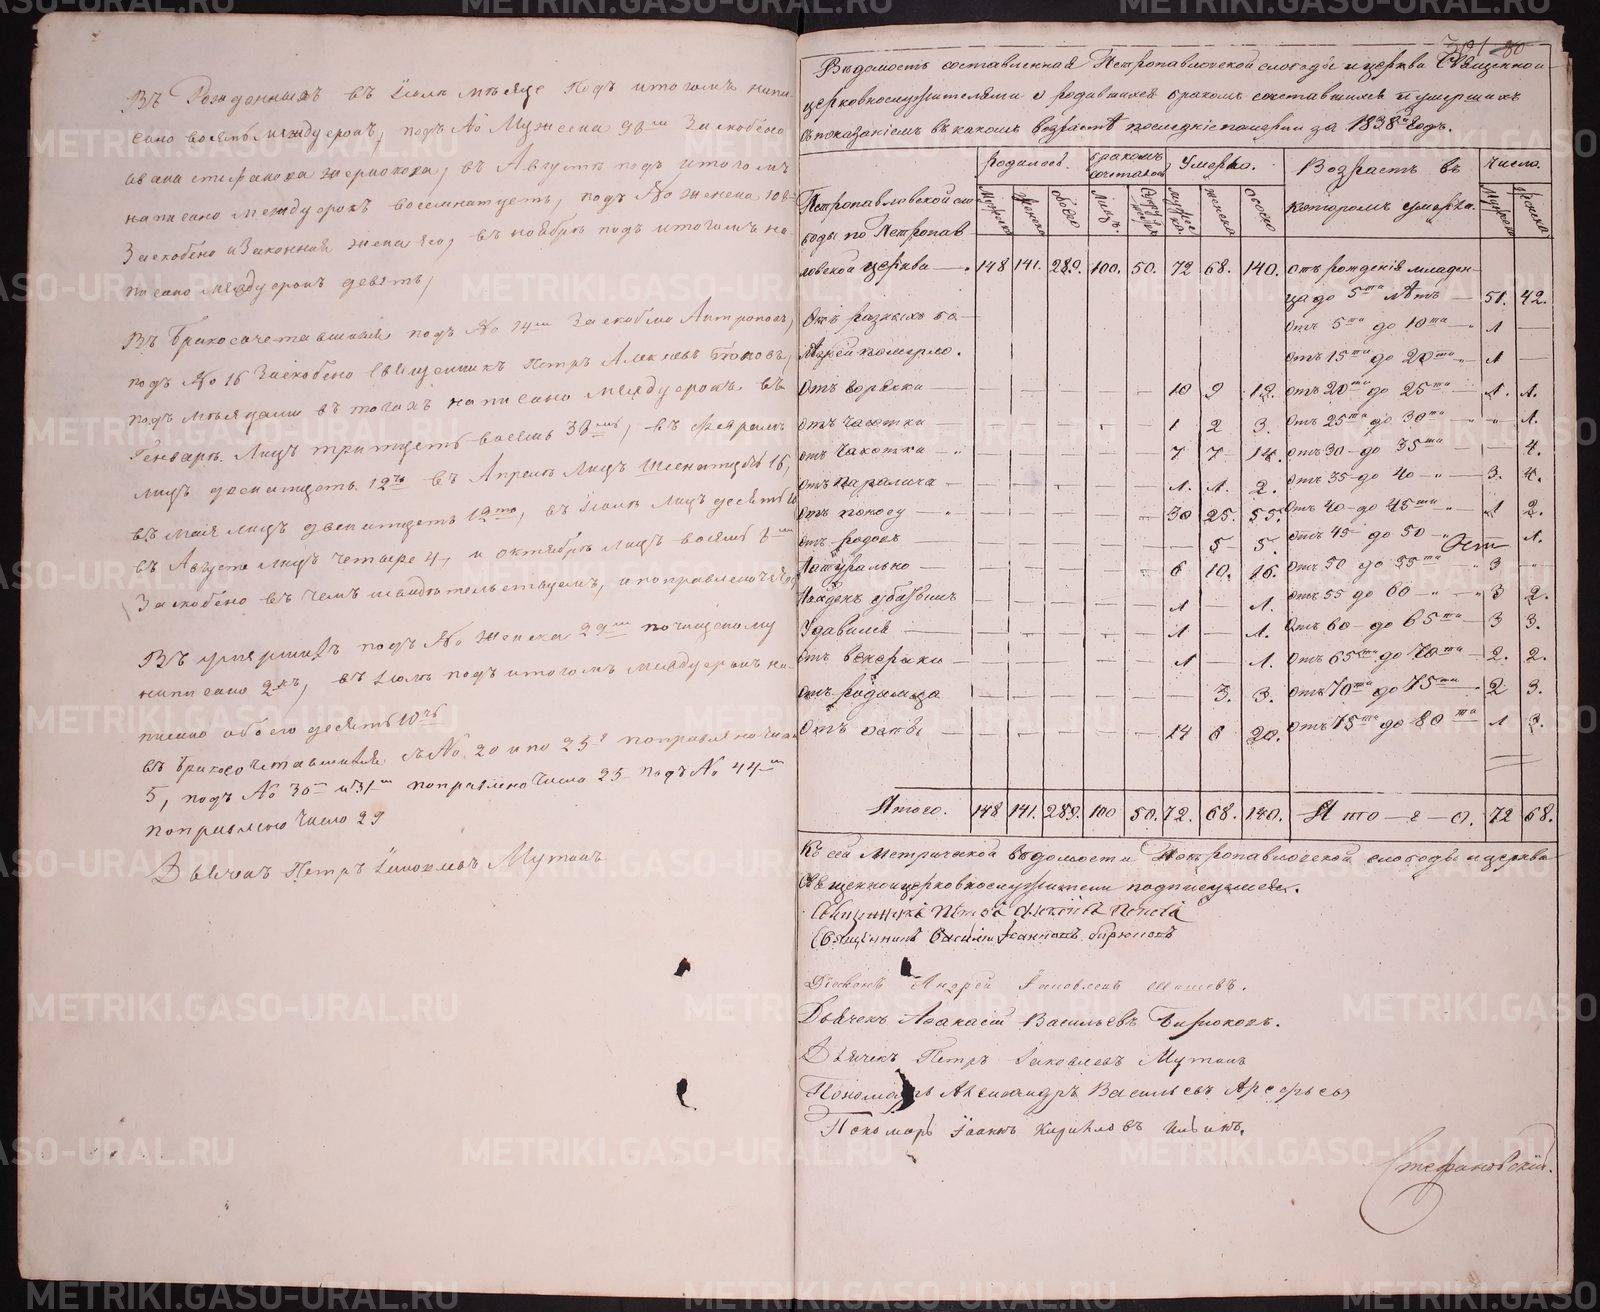 Въ Рожденныхъ въ Іюлѣ мѣсяце Подъ итогомъ напи-
сано восемь между срокъ, подъ № Мужеска 98мъ Заскоблено
ивана стефанова, въ Августѣ подъ итогомъ
написано между срокъ восемнатцеть, подъ № женска 108
Заскоблено иЗаконная жена его, въ ноябрѣ подъ итогомъ на-
писано между срокъ девять,
Въ Бракосочетавшихся подъ № 14мъ Заскоблено
подъ № 16 Заскоблено Священникъ Петръ Алексѣевъ Поповъ,
подъ мѣсяцами въ итогахъ написано между срокъ въ
Генварѣ Лицъ тритцеть восемь 38мь, въ Февралѣ
лицъ двенатцеть 12ть въ Апрелѣ Лицъ Шеснатцеть 16,
въ маіѣ лицъ двенатцеть 12ть, въ Іюлѣ лицъ десять 10
въ Августѣ лицъ четыре 4, и октябрѣ лицъ восемь 8мь
Заскоблено въ чемъ свидѣтельствуемъ, и поправлено
Въ умершихъ подъ № женска 29мъ по чищеному
написано 2хъ, въ Іюлѣ подъ итогомъ между срокъ на-
писано обоего десять 10ть
въ бракосочетавшихся съ № 20 и по 25й поправлено число
5, подъ № 30мъ и 31мъ поправлено число 25 подъ № 44мъ
поправлено число 29
Дьячекъ Петръ Іаковлевъ Мутинъ
301 80
Вѣдомость составленная Петропавловской слободы и церкви Священно-
церковнослужителями о родившихся бракомъ сочетавшихся и умершихъ
съ показаніемъ въ какомъ возрастѣ последніе померли за 1838й Годъ.
родилось. бракомъ сочетались Умерло. Возрастъ въ Число.
Петропавловской сло- Мужска Женска Обоего Лицъ. Супружествъ мужеска. женска. обоего. которомъ умерли. Мужска Женска.
боды по Петропав
ловской церкви — 148 141. 289. 100. 50. 72 68. 140. отъ рожденія младен-
ца до 5ти лѣтъ — 51. 42.
Отъ разныхъ бо- Отъ 5ти до 10ти — 1 —
лѣзней померло. Отъ 15ти до 20ти — 1 —
Отъ горячки — 10 2 12. Отъ 20ти до 25ти — 1. 1.
Отъ чахотки — 1 2 3. Отъ 25ти до 30ти — „ 1.
отъ чахотка — 7 7 14. Отъ 30 до 35ти — 4.
отъ паралича — 1. 1. 2. Отъ 35 до 40 — 3. 4.
Отъ поносу — 30 25. 55. Отъ 40 до 45ти — 1 2.
отъ родовъ — 5 5. отъ 45 до 50 — 1.
Натурально — 6 10. 16. Отъ 50 до 55ти 3 —
1 — 1. отъ 55 до 60 — 3 2.
Удавился — 1 — 1. Отъ 60 до 65ти 3 3.
отъ — 1 — 1. Отъ 65ти до 70ти 2. 2.
отъ родимца 3. 3. отъ 70ти до 75ти 2 3.
Отъ оспы 14 6 20. отъ 75ти до 80ти 1 3.
Итого. 148 141. 289. 100 50. 72. 68. 140. И то—г—о. 72 68.
Къ сей Метрической вѣдомости Петропавловской слободы и церкви
Священноцерковнослужители подписуемся.
Священникъ Петръ Алексѣевъ Поповъ
Священникъ Василій Іоанновъ Бирюковъ
Діаконъ Андрей Іаковлевъ
Дьячекъ Афанасій Васильевъ Бирюковъ.
Дьячекъ Петръ Іаковлевъ Мутинъ
Пономарь Александръ Васильевъ Арсеньевъ
Пономарь Іоаннъ Кириловъ Ильинъ.
Стефановскій.
METRIKI.GASO-URAL.RU